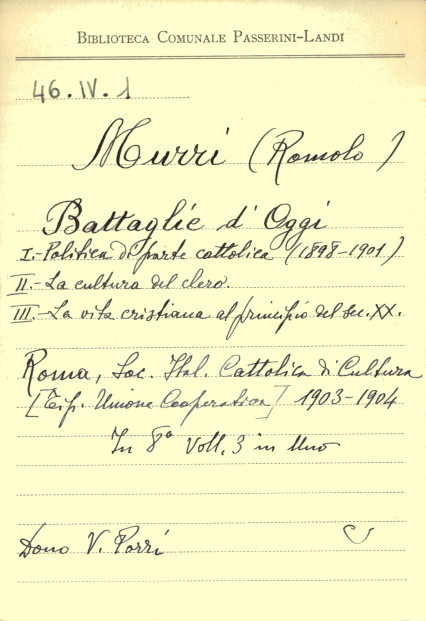 BIBLIOTECA COMUNALE PASSERINI-LANDI
46.IV.1
Murri (Romolo)
Battaglie d'Oggi
I.- Politica di parte cattolica (1898-1901)
II.- La cultura del clero.
III.- La vita cristiana al principio del sec. XX.
Roma, Soc. Ital. Cattolica di Cultura
[Tip. Unione Cooperativa] 1903-1904
In 8° Voll. 3 in Uno
Dono V. Porri